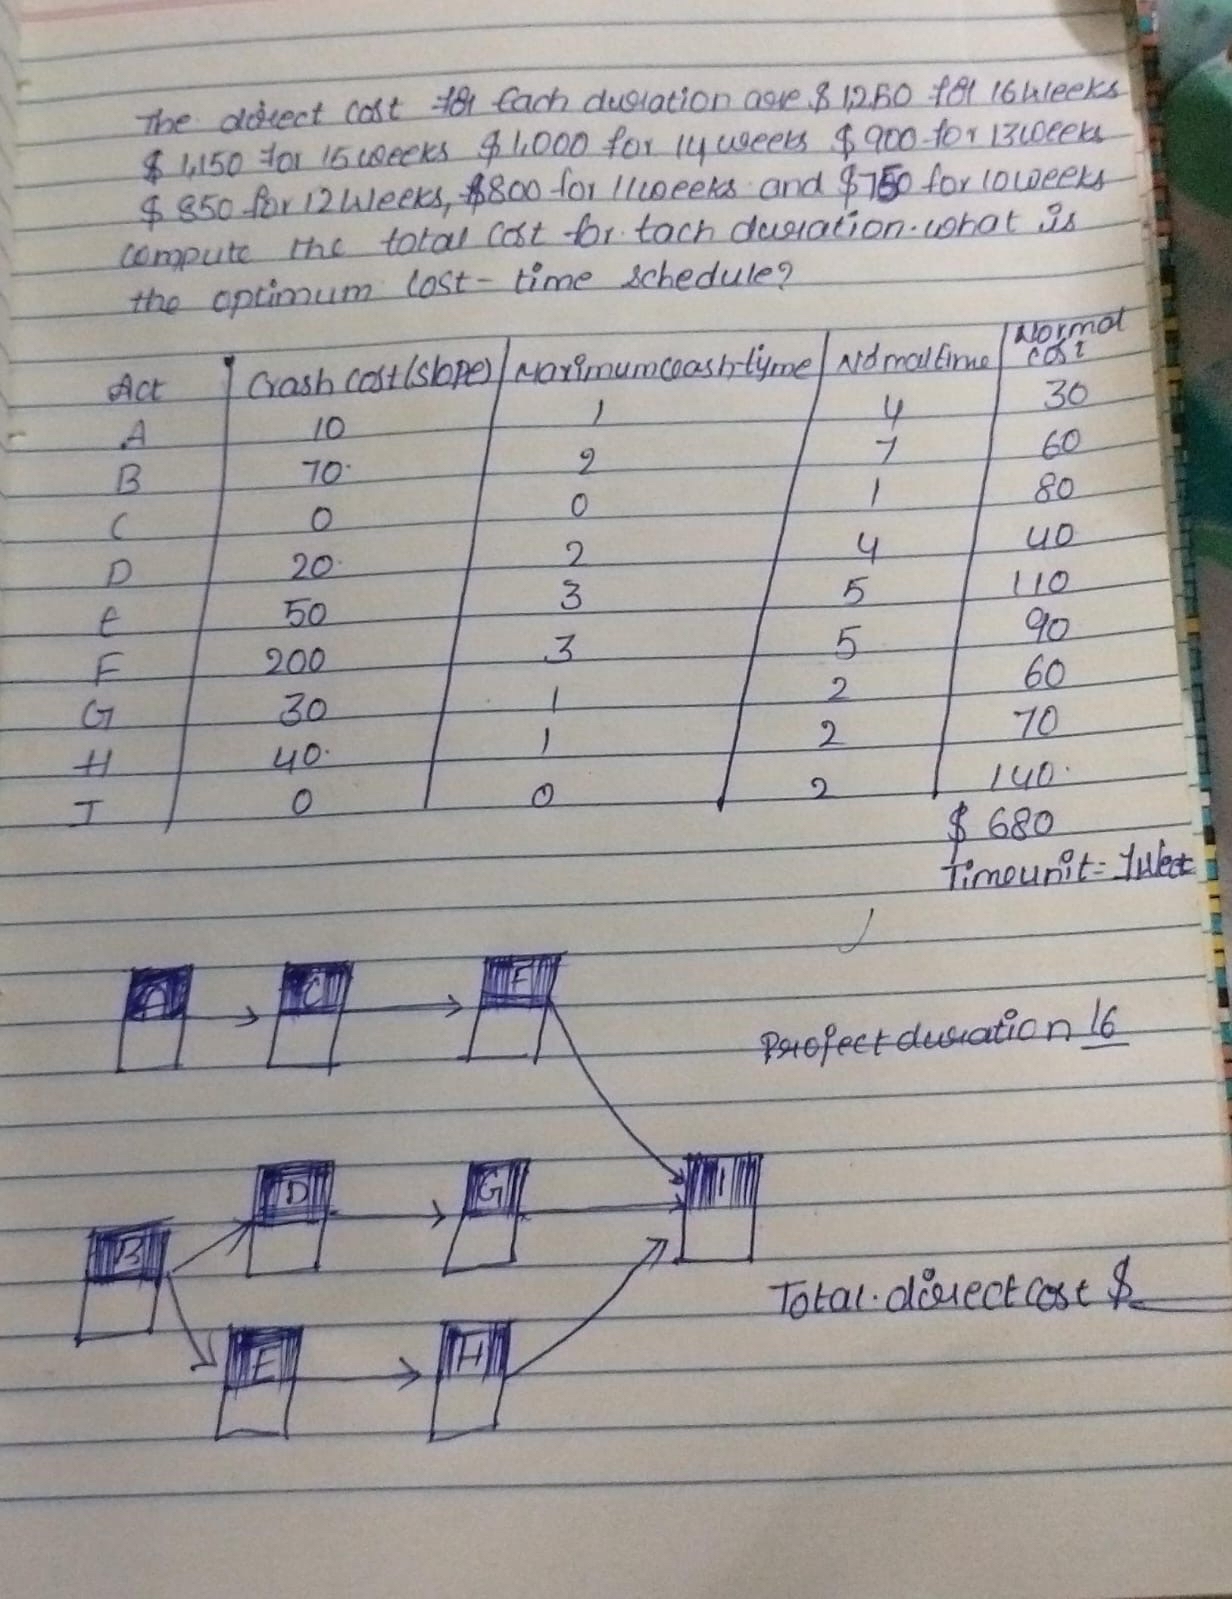 The direct cost for Each duration are $1,250 for 16 Weeks
$ 1,150 for 15 weeks $ 1,000 for 14 weeks $ 900 for 13 weeks
$ 850 for 12 Weeks, $800 for 11 weeks and $750 for 10 weeks
compute the total cost for tach duration. what is
the optimum Cost - time schedule?
Act Crash cost (slope) Maximum crash-tyme Normal time Normal cost
A 10 1 4 30
B 70. 2 7 60
C 0 0 1 80
D 20. 2 4 40
E 50 3 5 110
F 200 3 5 90
G 30 1 2 60
H 40. 1 2 70
I 0 0 2 140.
$ 680
Time unit = 1 Week
A C F
Project duration 16
D G I
B
Total. direct cost $
E H